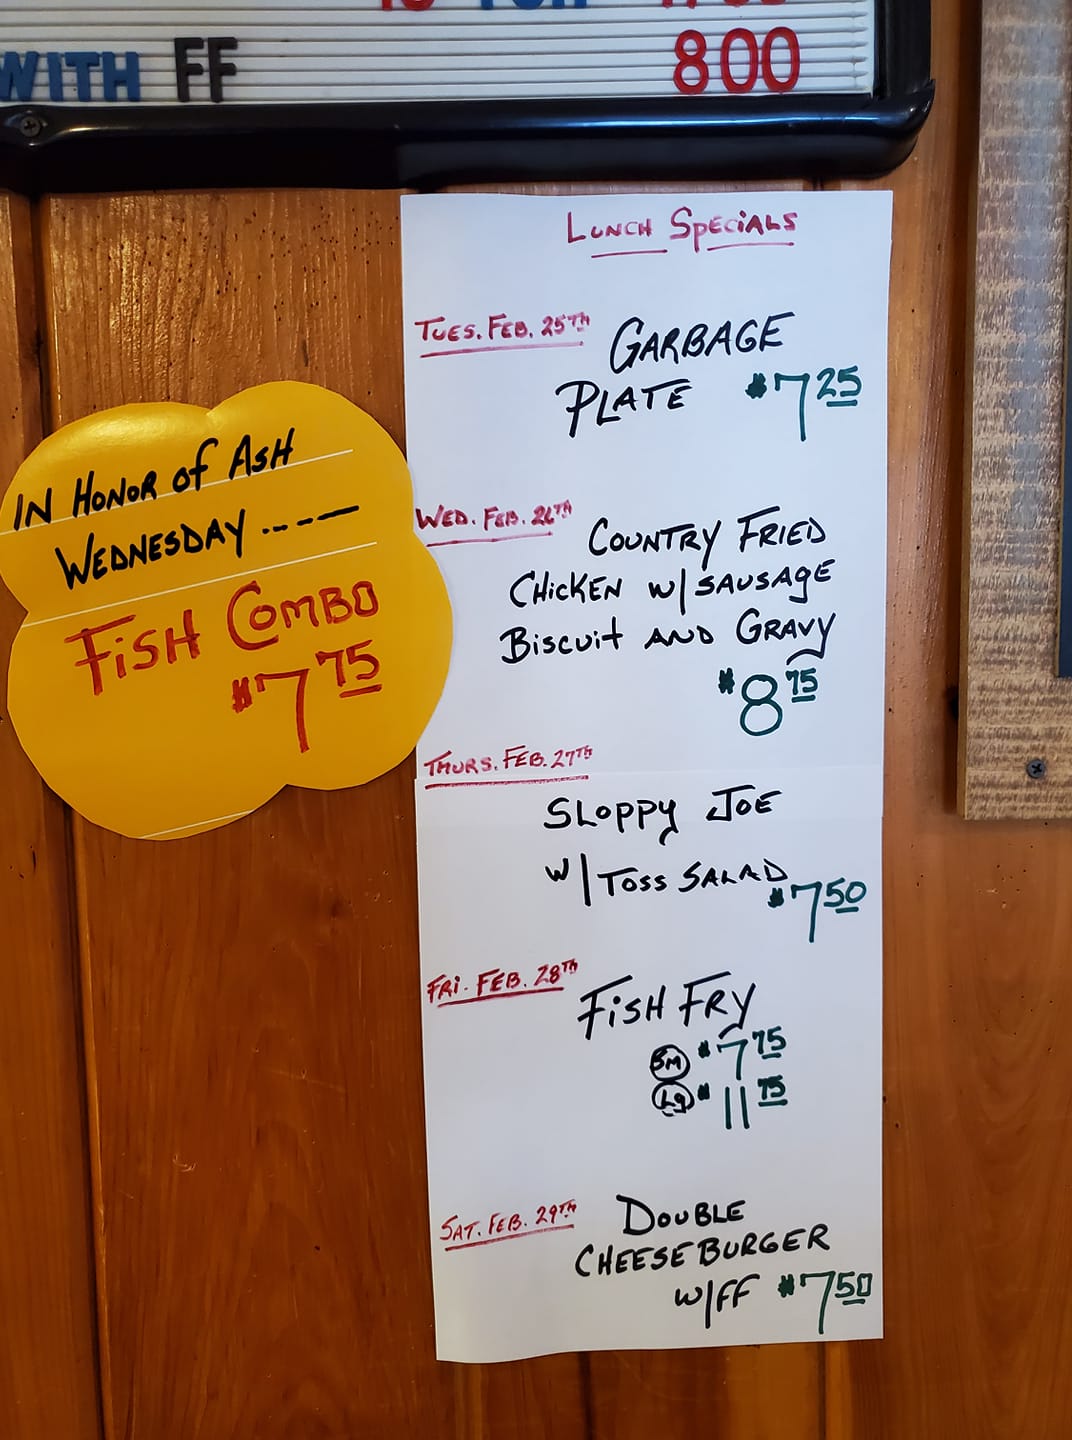 WITH FF 800
LUNCH SPECIALS
TUES. FEB. 25TH
GARBAGE
PLATE $7 25
IN HONOR OF ASH
WEDNESDAY -----
FISH COMBO
$7 75
WED. FEB. 26TH
COUNTRY FRIED
CHICKEN W/SAUSAGE
BISCUIT AND GRAVY
$8 75
THURS. FEB. 27TH
SLOPPY JOE
W/TOSS SALAD
$7 50
FRI. FEB. 28TH
FISH FRY
SM $7 75
Lg $11 75
SAT. FEB. 29TH
DOUBLE
CHEESEBURGER
W/FF $7 50